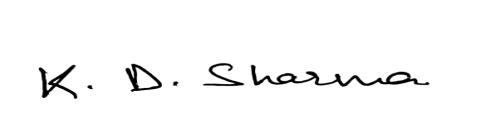 K. D. Sharma